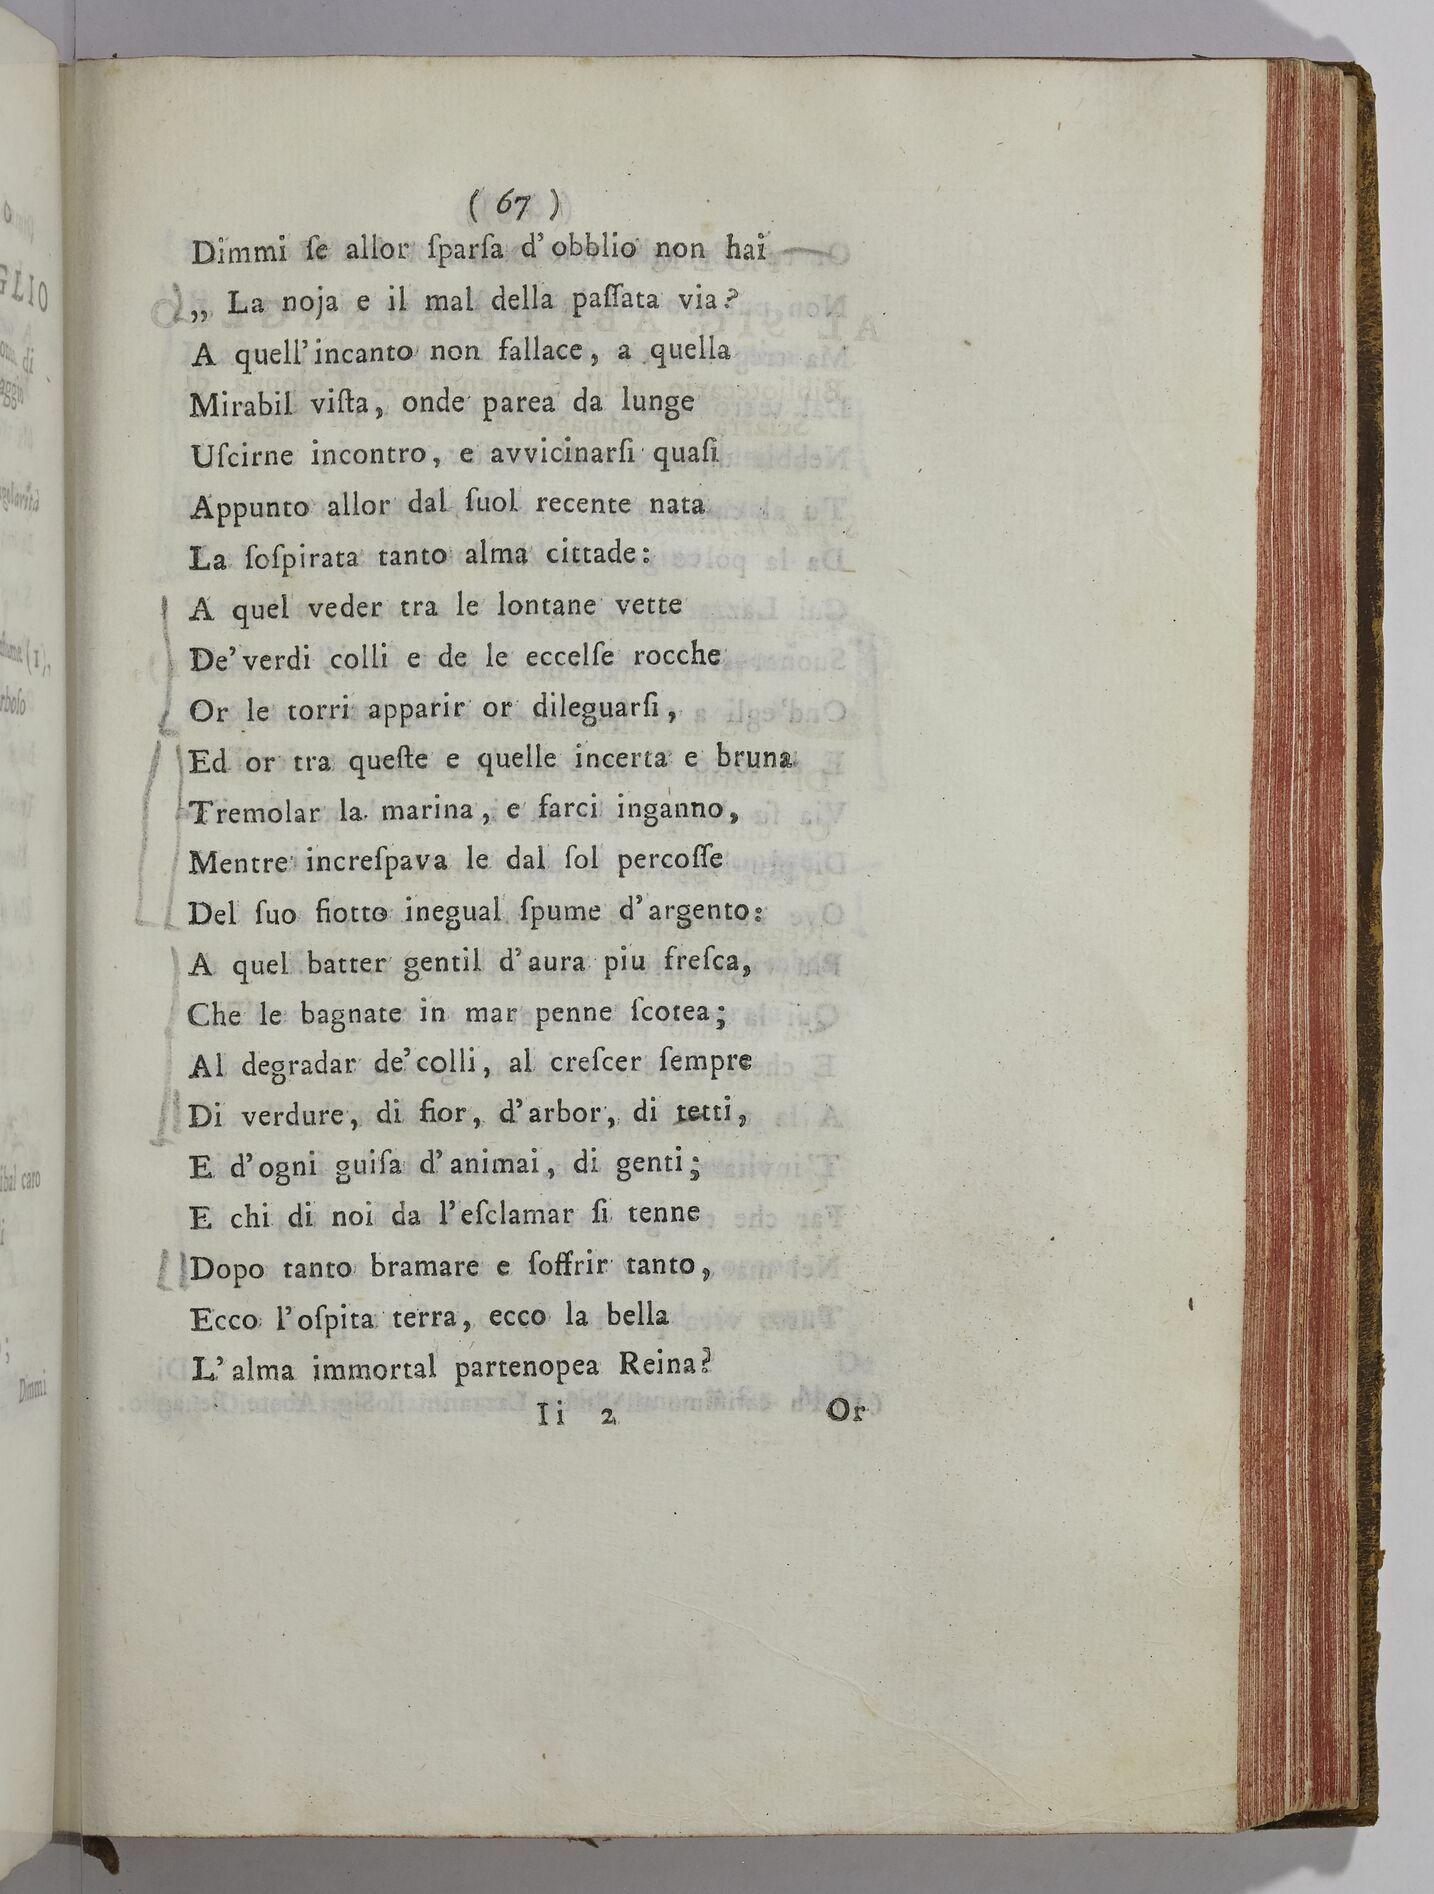 ( 67 )
Dimmi ſe allor ſparſa d' obblio non hai
„ La noja e il mal della paſſata via?
A quell' incanto non fallace, a quella
Mirabil viſta, onde parea da lunge
Uſcirne incontro, e avvicinarſi quaſi
Appunto allor dal ſuol recente nata
La ſoſpirata tanto alma cittade:
A quel veder tra le lontane vette
De' verdi colli e de le eccelſe rocche
Or le torri apparir or dileguarſi,
Ed or tra queſte e quelle incerta e bruna
Tremolar la marina, e farci inganno,
Mentre increſpava le dal ſol percoſſe
Del ſuo fiotto inegual ſpume d' argento:
A quel batter gentil d' aura piu freſca,
Che le bagnate in mar penne ſcotea;
Al degradar de' colli, al creſcer ſempre
Di verdure, di fior, d' arbor, di tetti,
E d' ogni guiſa d' animai, di genti;
E chi di noi da l' eſclamar ſi tenne
Dopo tanto bramare e ſoffrir tanto,
Ecco l' oſpita terra, ecco la bella
L' alma immortal partenopea Reina?
Ii 2 Or